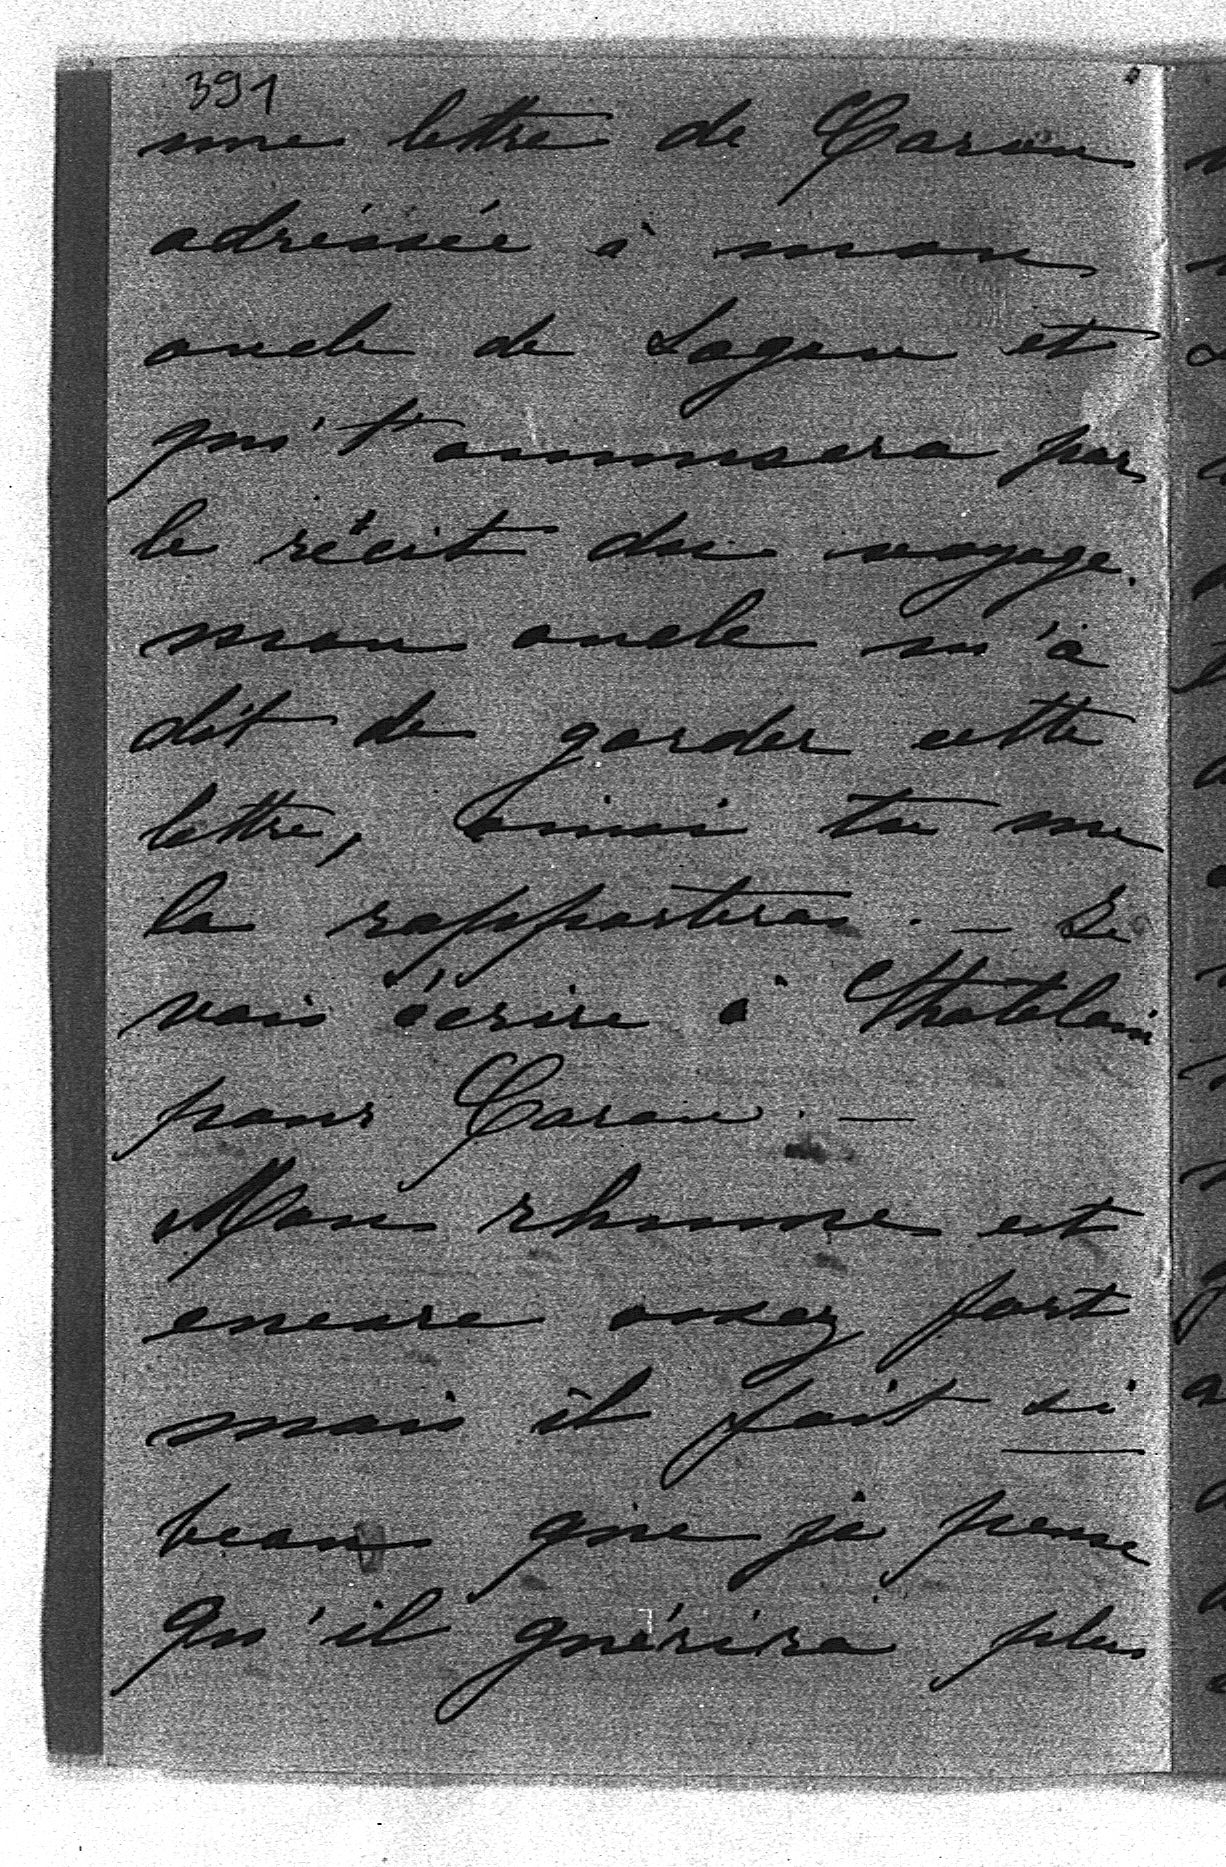 391
une lettre de Caron
adréssée à mon
oncle de Lagou et
qui t'ammusera par
le récit du voyage.
mon oncle m'a
dit de garder cette
lettre, ainsi tu me
la rapporteras. — Je
vais écrire à Chatelain
pour Caron. —
Mon rhumme est
encore assez fort
mais il fait si
beau que je pense
qu'il guérira plus